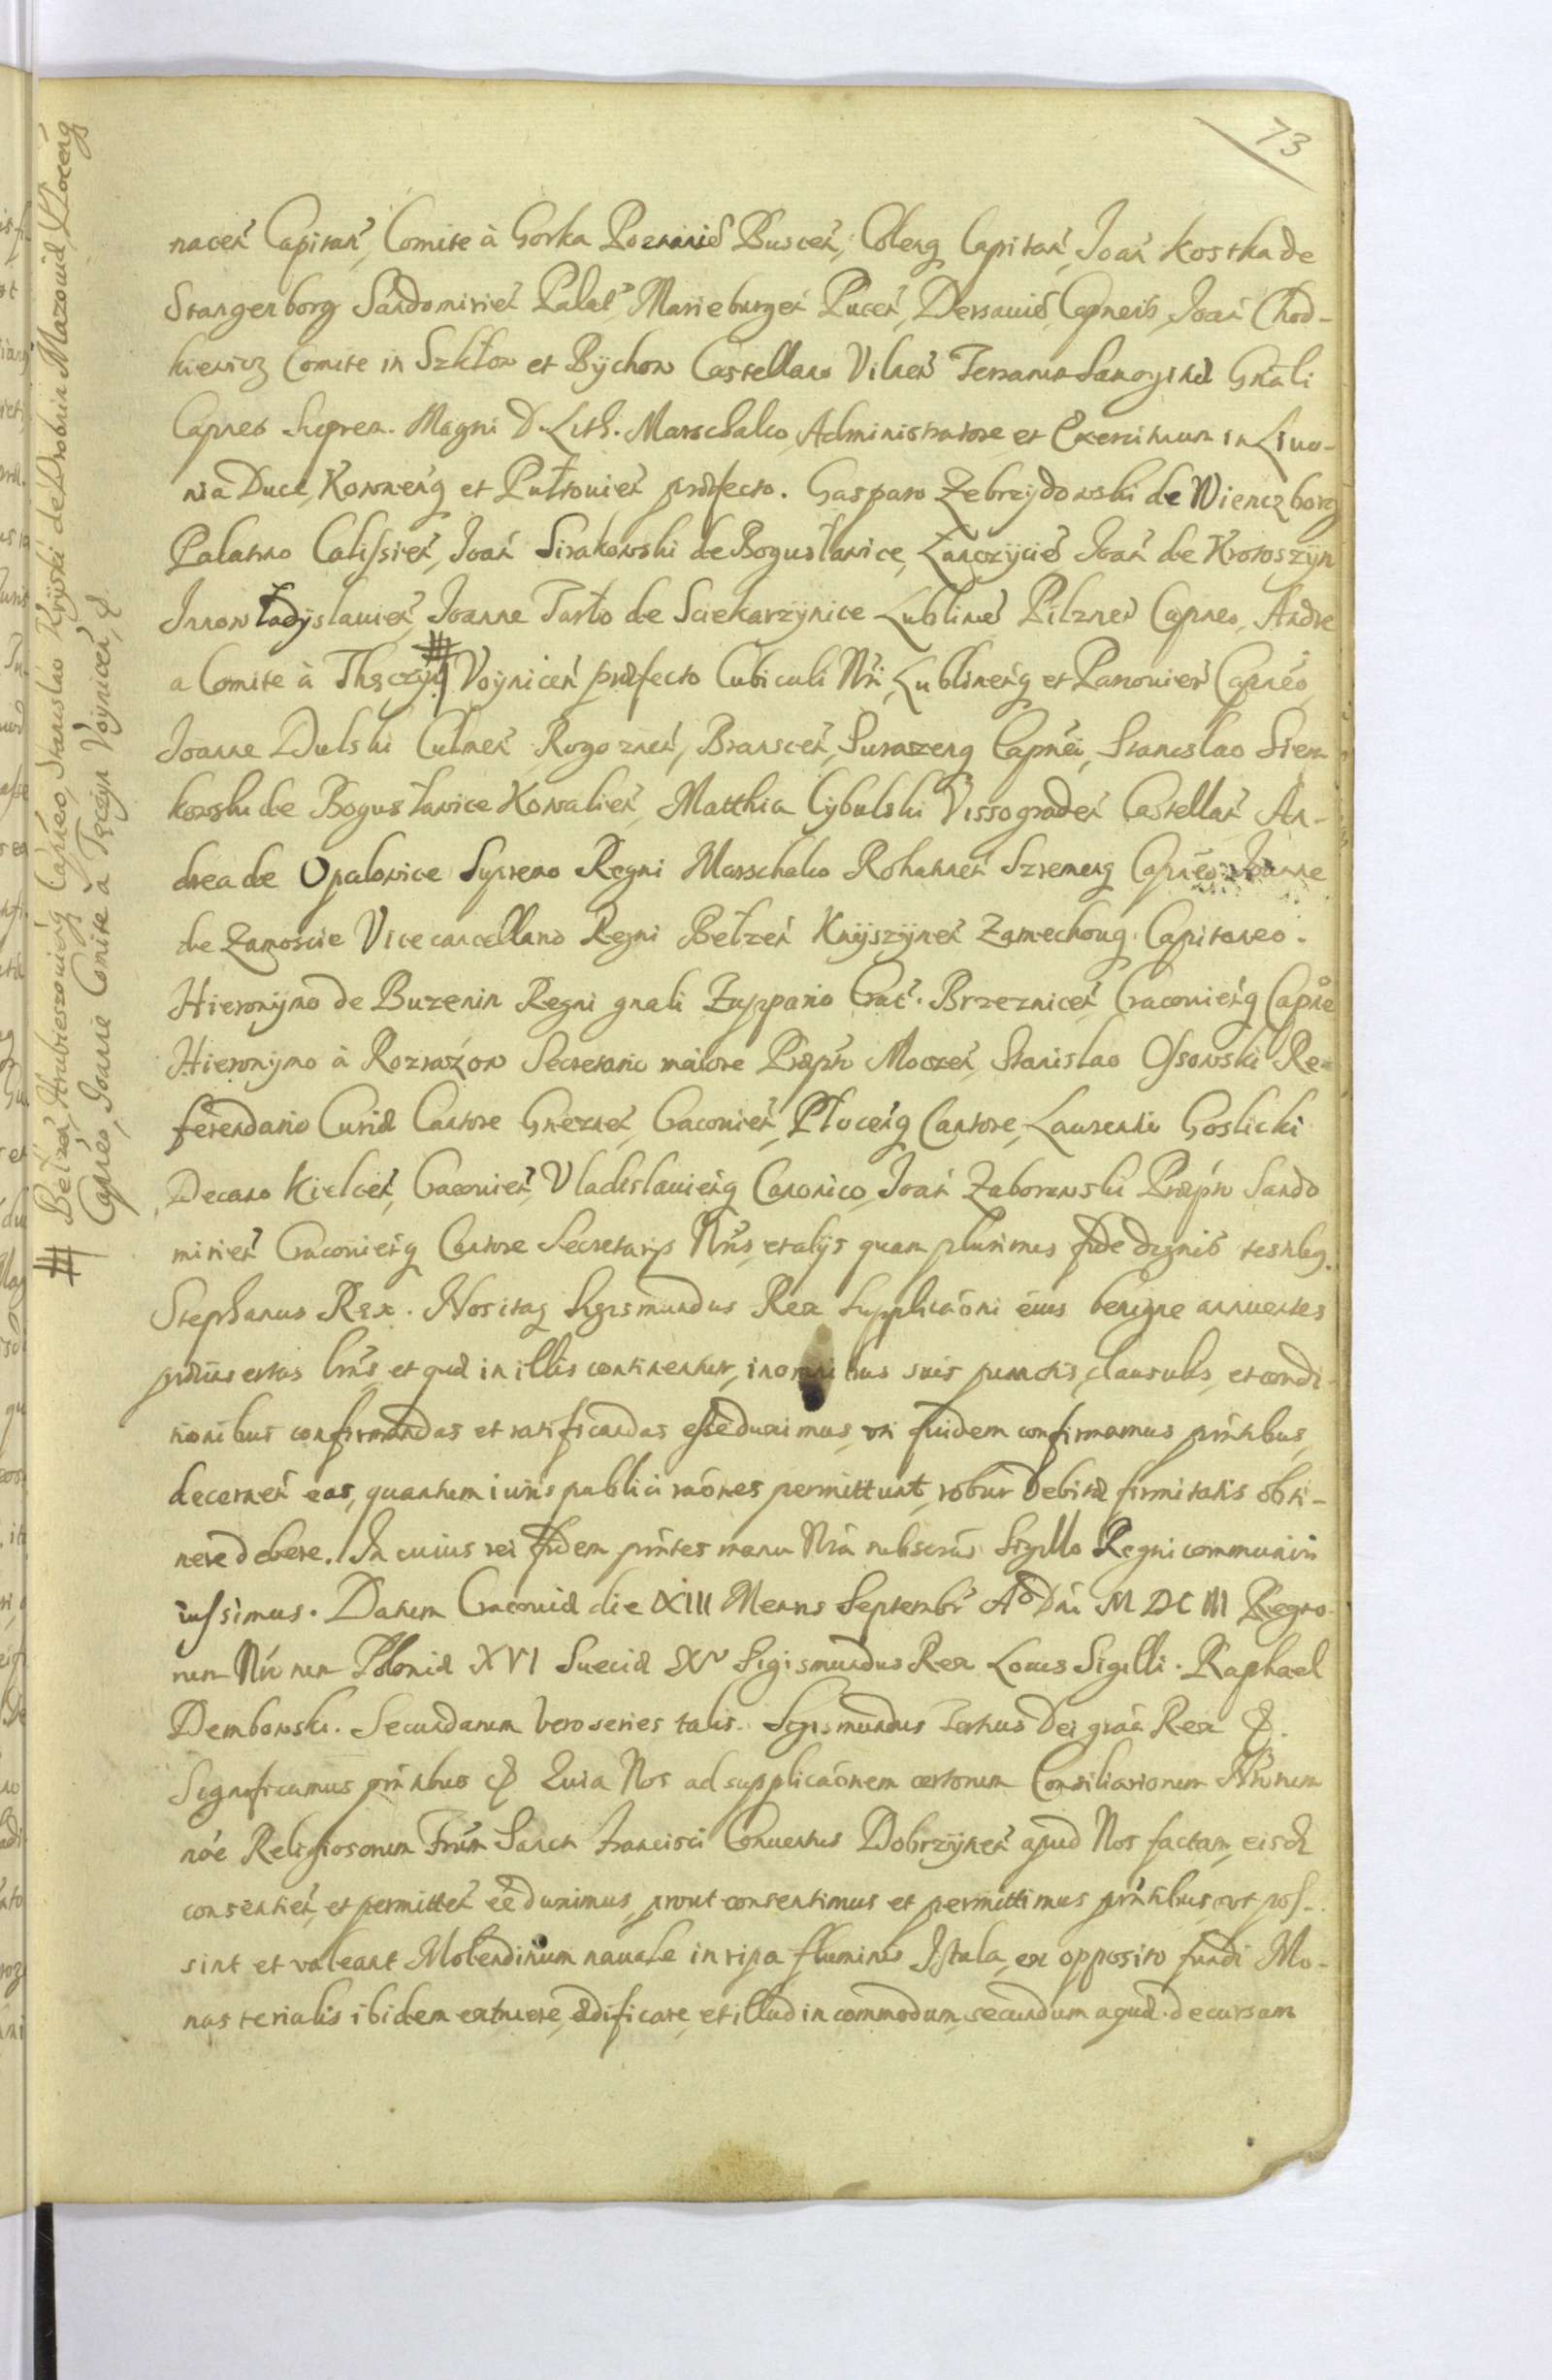 73
naceń Capitań, Comite à Gorka Poznanie͂ Buscen, Coleng Capitań, Joań Kostka de
Stangenborg Sandomirień Palat Marieburgeń Puceń, Dersauie͂, Capneis, Joań Chod-
kiewicz Comite in Szkłow et Bÿchow Castellano Vilneń Terrarum Samogitiæ Gńali
Capneo Suprem. Magni D. Lith. Marschalco, Administratore et Exercituum in Liuo-
nia Duce, Kowneńg et Pułtouień præfecto. Gasparo Zebrzÿdowski de Wienczborg
Palatino Calissień, Joań Sirakowski de Bogusławice, Lanczÿcie͂ Joań de Krotoszÿn
Jnnowładÿslauień, Joanne Tarło de Sciekarzÿnice Lubline͂ Pilzneń Capneo, Andre
a Comite à Thęczÿń # Voÿniceń præfecto Cubiculi Nri, Lublineńg et Parnouień Capneo
Joanne Dulski Culmeń Rogozneń, Bransceń, Surazeng Capnei, Stanislao Siera
kowski de Bogusławice Kowalień, Matthia Cÿbulski Vissogradeń Castellań An-
drea de Opalowice Supremo Regni Marschalco Rohatineń Szremeng Capneo Joanne
de Zamoscie Vicecancellano Regni Bełzeń Knÿszÿneń Zamechoug. Capitaneo.
Hieronÿmo de Buzenin Regni gnali Zuppario Crac. Brzezniceń Cracouieńg Capne
Hieronÿmo à Rozrażow Secretario maiore Præpto Moczeń, Stanislao Ossowski Re-
ferendario Curiæ Cantore Gnezneń, Cracouień, Płoceńg Cantore, Laurentio Goslicki
Decano Kielceń, Cracouień, Vladislauieńg Canonico, Joań Zaborowski Præpto Sando
mirień Cracouieńg Cantore Secretarijs Nris, et alijs quam plurimis fide dignis testibg.
Stephanus Rex. Nos itaq Sigismundus Rex Supplicaoni eius benigne annuentes
præinsertas lras, et quæ in illis continentur, in omnibus suis punctis, clausulis, et condi-
tionibus confirmandas et ratificandas esse duximus, uti quidem confirmamus prntibus,
decerneń eas, quantum iuris publici raones permittunt, robur debitæ firmitatis obti-
nere debere. In cuius rei fidem prntes manu Nra subscras Sigillo Regni communiri
iussimus. Datum Cracouiæ die XIII Mensis Septembr Ao Dni M DC III Regno-
rum Nrorum Poloniæ XVI Sueciæ XV Sigismundus Rex Locus Sigilli. Raphael
Dembowski. Secundarum vero series talis. Sigismundus Tertius Dei graa Rex &.
Significamus prntibus & Quia Nos ad supplicaonem certorum Consiliariorum Nrorum
noe Religiosorum Frum Sancti Francisci Conuentus Dobrzÿneń apud Nos factam, eisd
consentień, et permitteń ee duximus, prout consentimus et permittimus prntibus, ut pos-
sint et valeant Molendinum nauale in ripa fluminis Istula, ex opposito fundi Mo-
nasterialis ibidem extruere, ædificare, et illud in commodum, secundum aquæ decursam
# Bełzeń, Hrubieszouieńg Capneo, Stanislao Krÿski de Drobnin Mazouiæ, Płoceńg
Capneo, Joanne Comite à Tęczÿn Voÿniceń, &